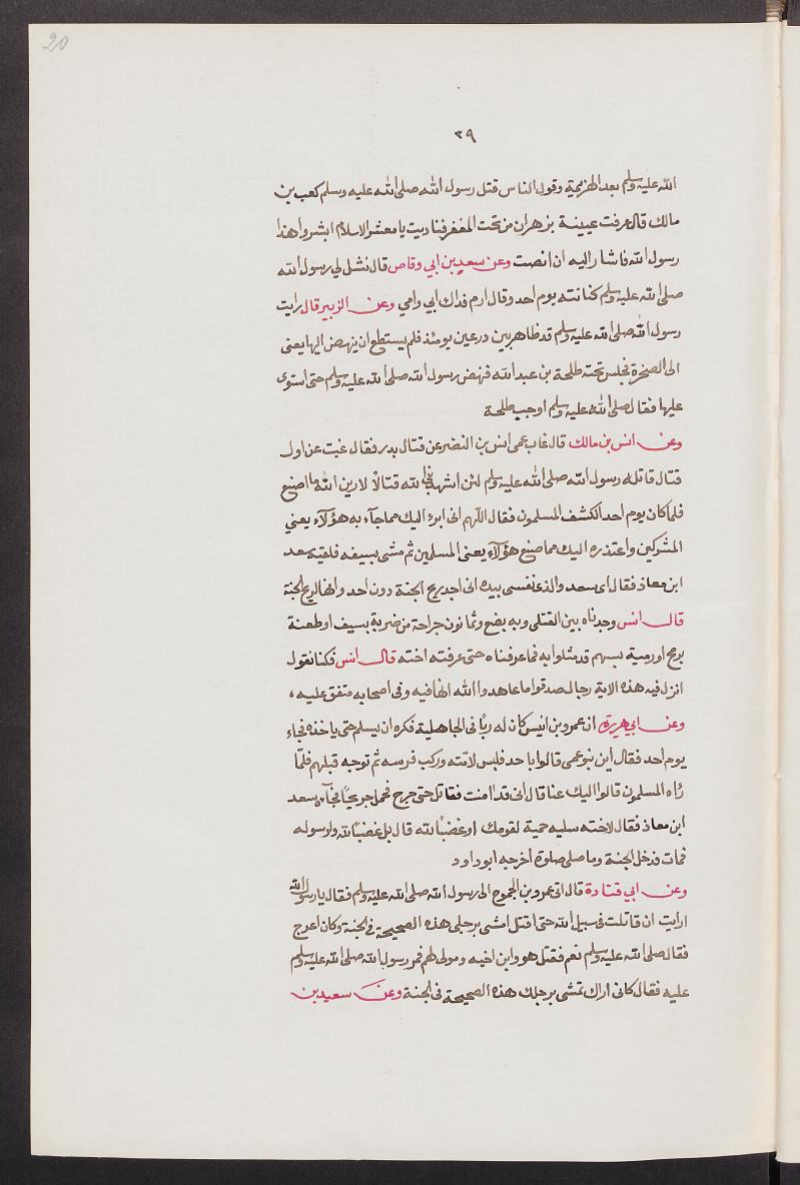 20
٣٩
الله عليه وسلم بعد الهزيمة وقول الناس قتل رسول الله صلى الله عليه وسلم كعب بن
مالك قال عرفت عينيه تزهران من تحت المغفر فناديت يا معشر الاسلام ابشروا هذا
رسول الله فاشار اليه ان انصت وعن سعد بن ابي وقاص قال نثل لي رسول الله
صلى الله عليه وسلم كنانته يوم احد وقال ارم فداك ابي وامي وعن الزبير قال رايت
رسول الله صلى الله عليه وسلم قد ظاهر بين درعين يومئذ فلم يستطع ان ينهض اليها يعنى
الى الصخرة فجلس تحته طلحة بن عبد الله فنهض رسول الله صلى الله عليه وسلم حتى استوى
عليها فقال صلى الله عليه وسلم اوجب طلحة
وعن انس بن مالك قال غاب عمى انس بن النضر عن قتال بدر فقال غبت عن اول
قتال قاتله رسول الله صلى الله عليه وسلم لئن اشهدني الله قتالا لارين الله ما اصنع
فلما كان يوم احد انكشف المسلمون فقال اللهم انى ابرء اليك مما جاء به هؤلاء يعني
المشركين واعتذره اليك مما صنع هؤلاء يعنى المسلمين ثم مشى بسيفه فلقيه سعد
ابن معاذ فقال اى سعد والذى نفسى بيده انى اجد ريح الجنة دون احد وانها لريح الجنة
قال انس وجدناه بين القتلى وبه بضع وثمانون جراحة من ضربة بسيف او طعنة
برمح او رمية بسهم قد مثلوا به فما عرفناه حتى عرفته اخته قال انس فكنا نقول
انزل فيه هذه الاية رجال صدقوا ما عاهدوا الله انها فيه وفى اصحابه متفق عليه ،
وعن ابي هريرة ان عمرو بن انيس كان له ربًا فى الجاهلية فكره ان يسلم حتى ياخذه فجاء
يوم احد فقال اين بنو عمى قالوا باحد فلبس لامته وركب فرسه ثم توجه قبلهم فلمّا
رأه المسلمون قالوا اليك عنا قال انى قد امنت فقاتل حتى جرح فحمل جريحًا فجآءه سعد
ابن معاذ فقال لاخته سليه حمية لقومك او غضبًا لله قال بل غضبًا لله ولرسوله
فمات فدخل الجنة وما صلى صلوة اخرجه ابو داود
وعن ابي قتادة قال اتى عمرو بن الجموح الى رسول الله صلى الله عليه وسلم فقال يا رسول الله
ارايت ان قاتلت فى سبيل الله حتى اقتل امشى برجلى هذه الصحيحة فى الجنة وكان اعرج
فقال صلى الله عليه وسلم نعم فقتل هو وابن اخيه ومولى لهم فمر رسول الله صلى الله عليه وسلم
عليه فقال كانى اراك تمشى برجلك هذه الصحيحة فى الجنة وعن سعيد بن